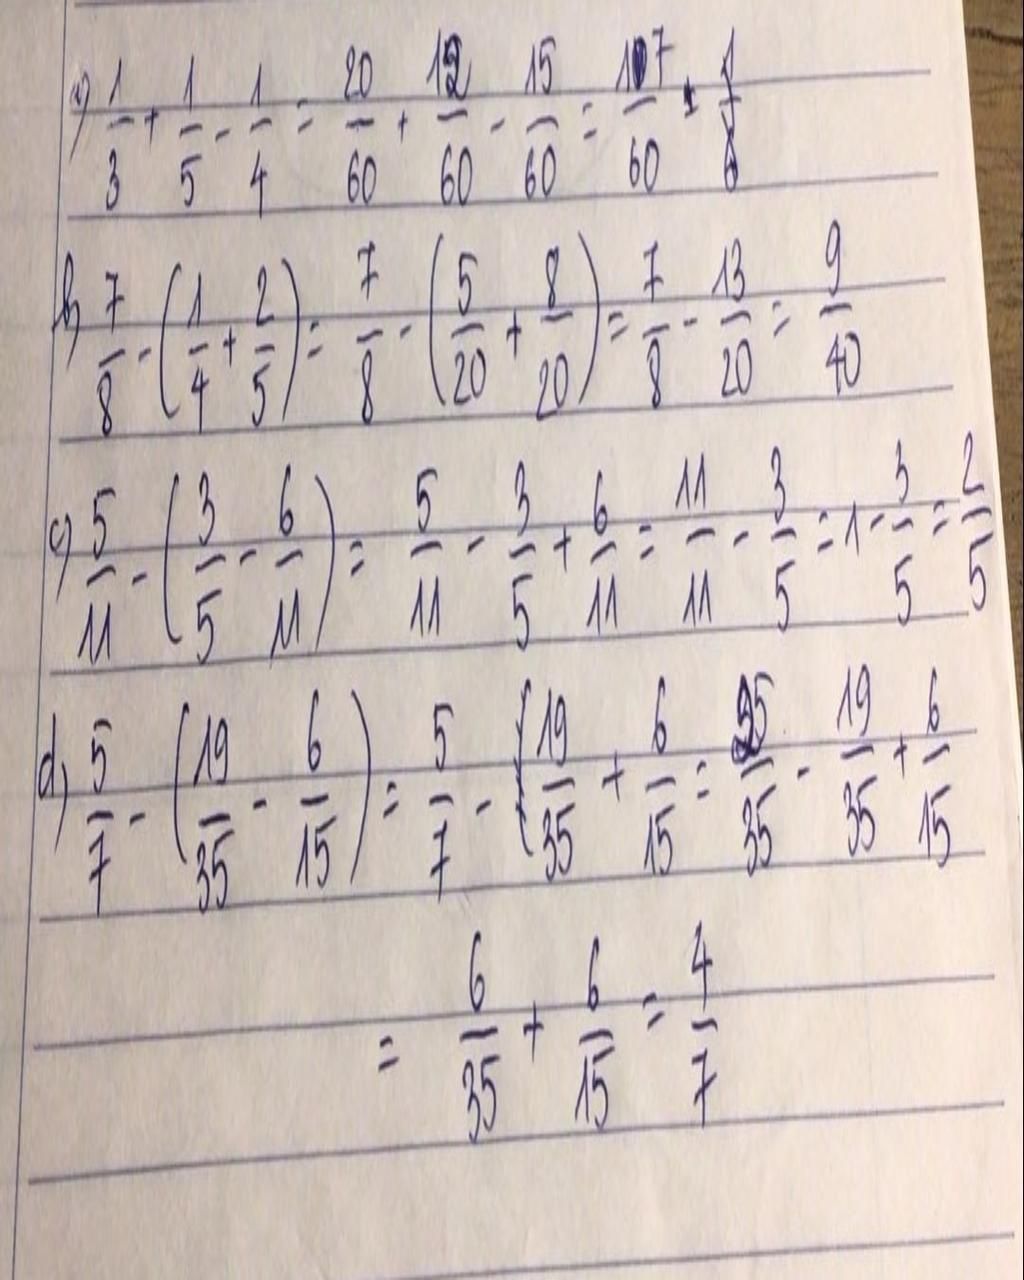 a) 1/3 + 1/5 - 1/4 = 20/60 + 12/60 - 15/60 = 107/60
b) 7/8 - (1/4 + 2/5) = 7/8 - (5/20 + 8/20) = 7/8 - 13/20 = 9/40
c) 5/11 - (3/5 - 6/11) = 5/11 - 3/5 + 6/11 = 11/11 - 3/5 = 1 - 3/5 = 2/5
d) 5/7 - (19/35 - 6/15) = 5/7 - (19/35 + 6/15 = 25/35 - 19/35 + 6/15
= 6/35 + 6/15 = 4/7